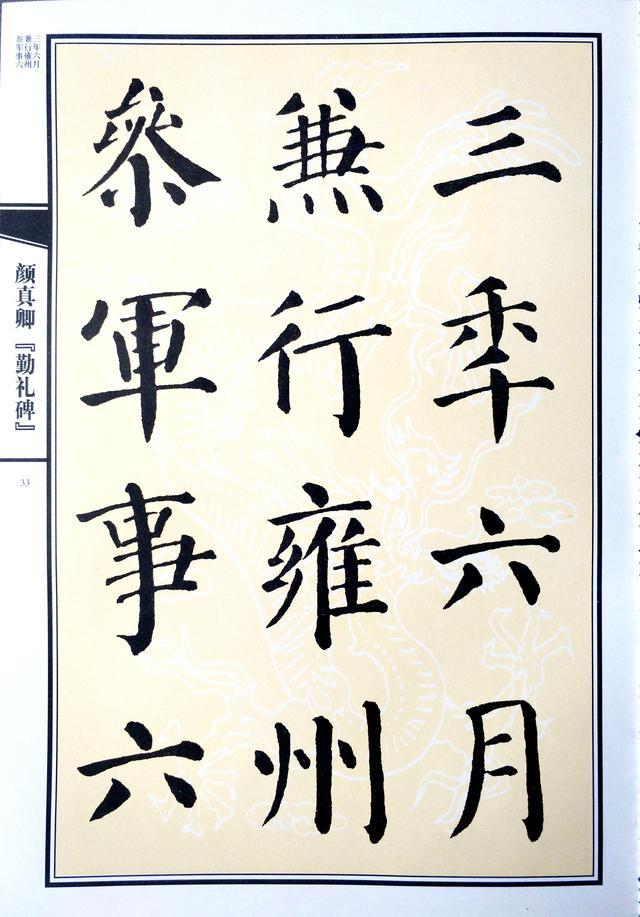 三秊六月
兼行雍州
叅軍事六
三年六月
兼行雍州
叁军事六
颜真卿『勤礼碑』
33